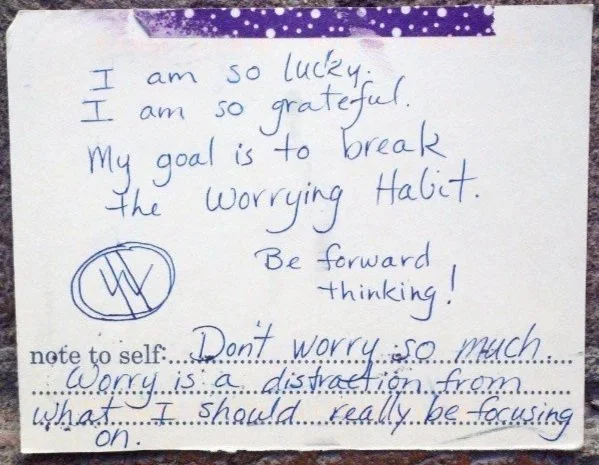 I am so lucky.
I am so grateful.
My goal is to break
the Worrying Habit.
W
Be forward
thinking!
note to self: Don't worry so much.
Worry is a distraction from
what I should really be focusing
on.